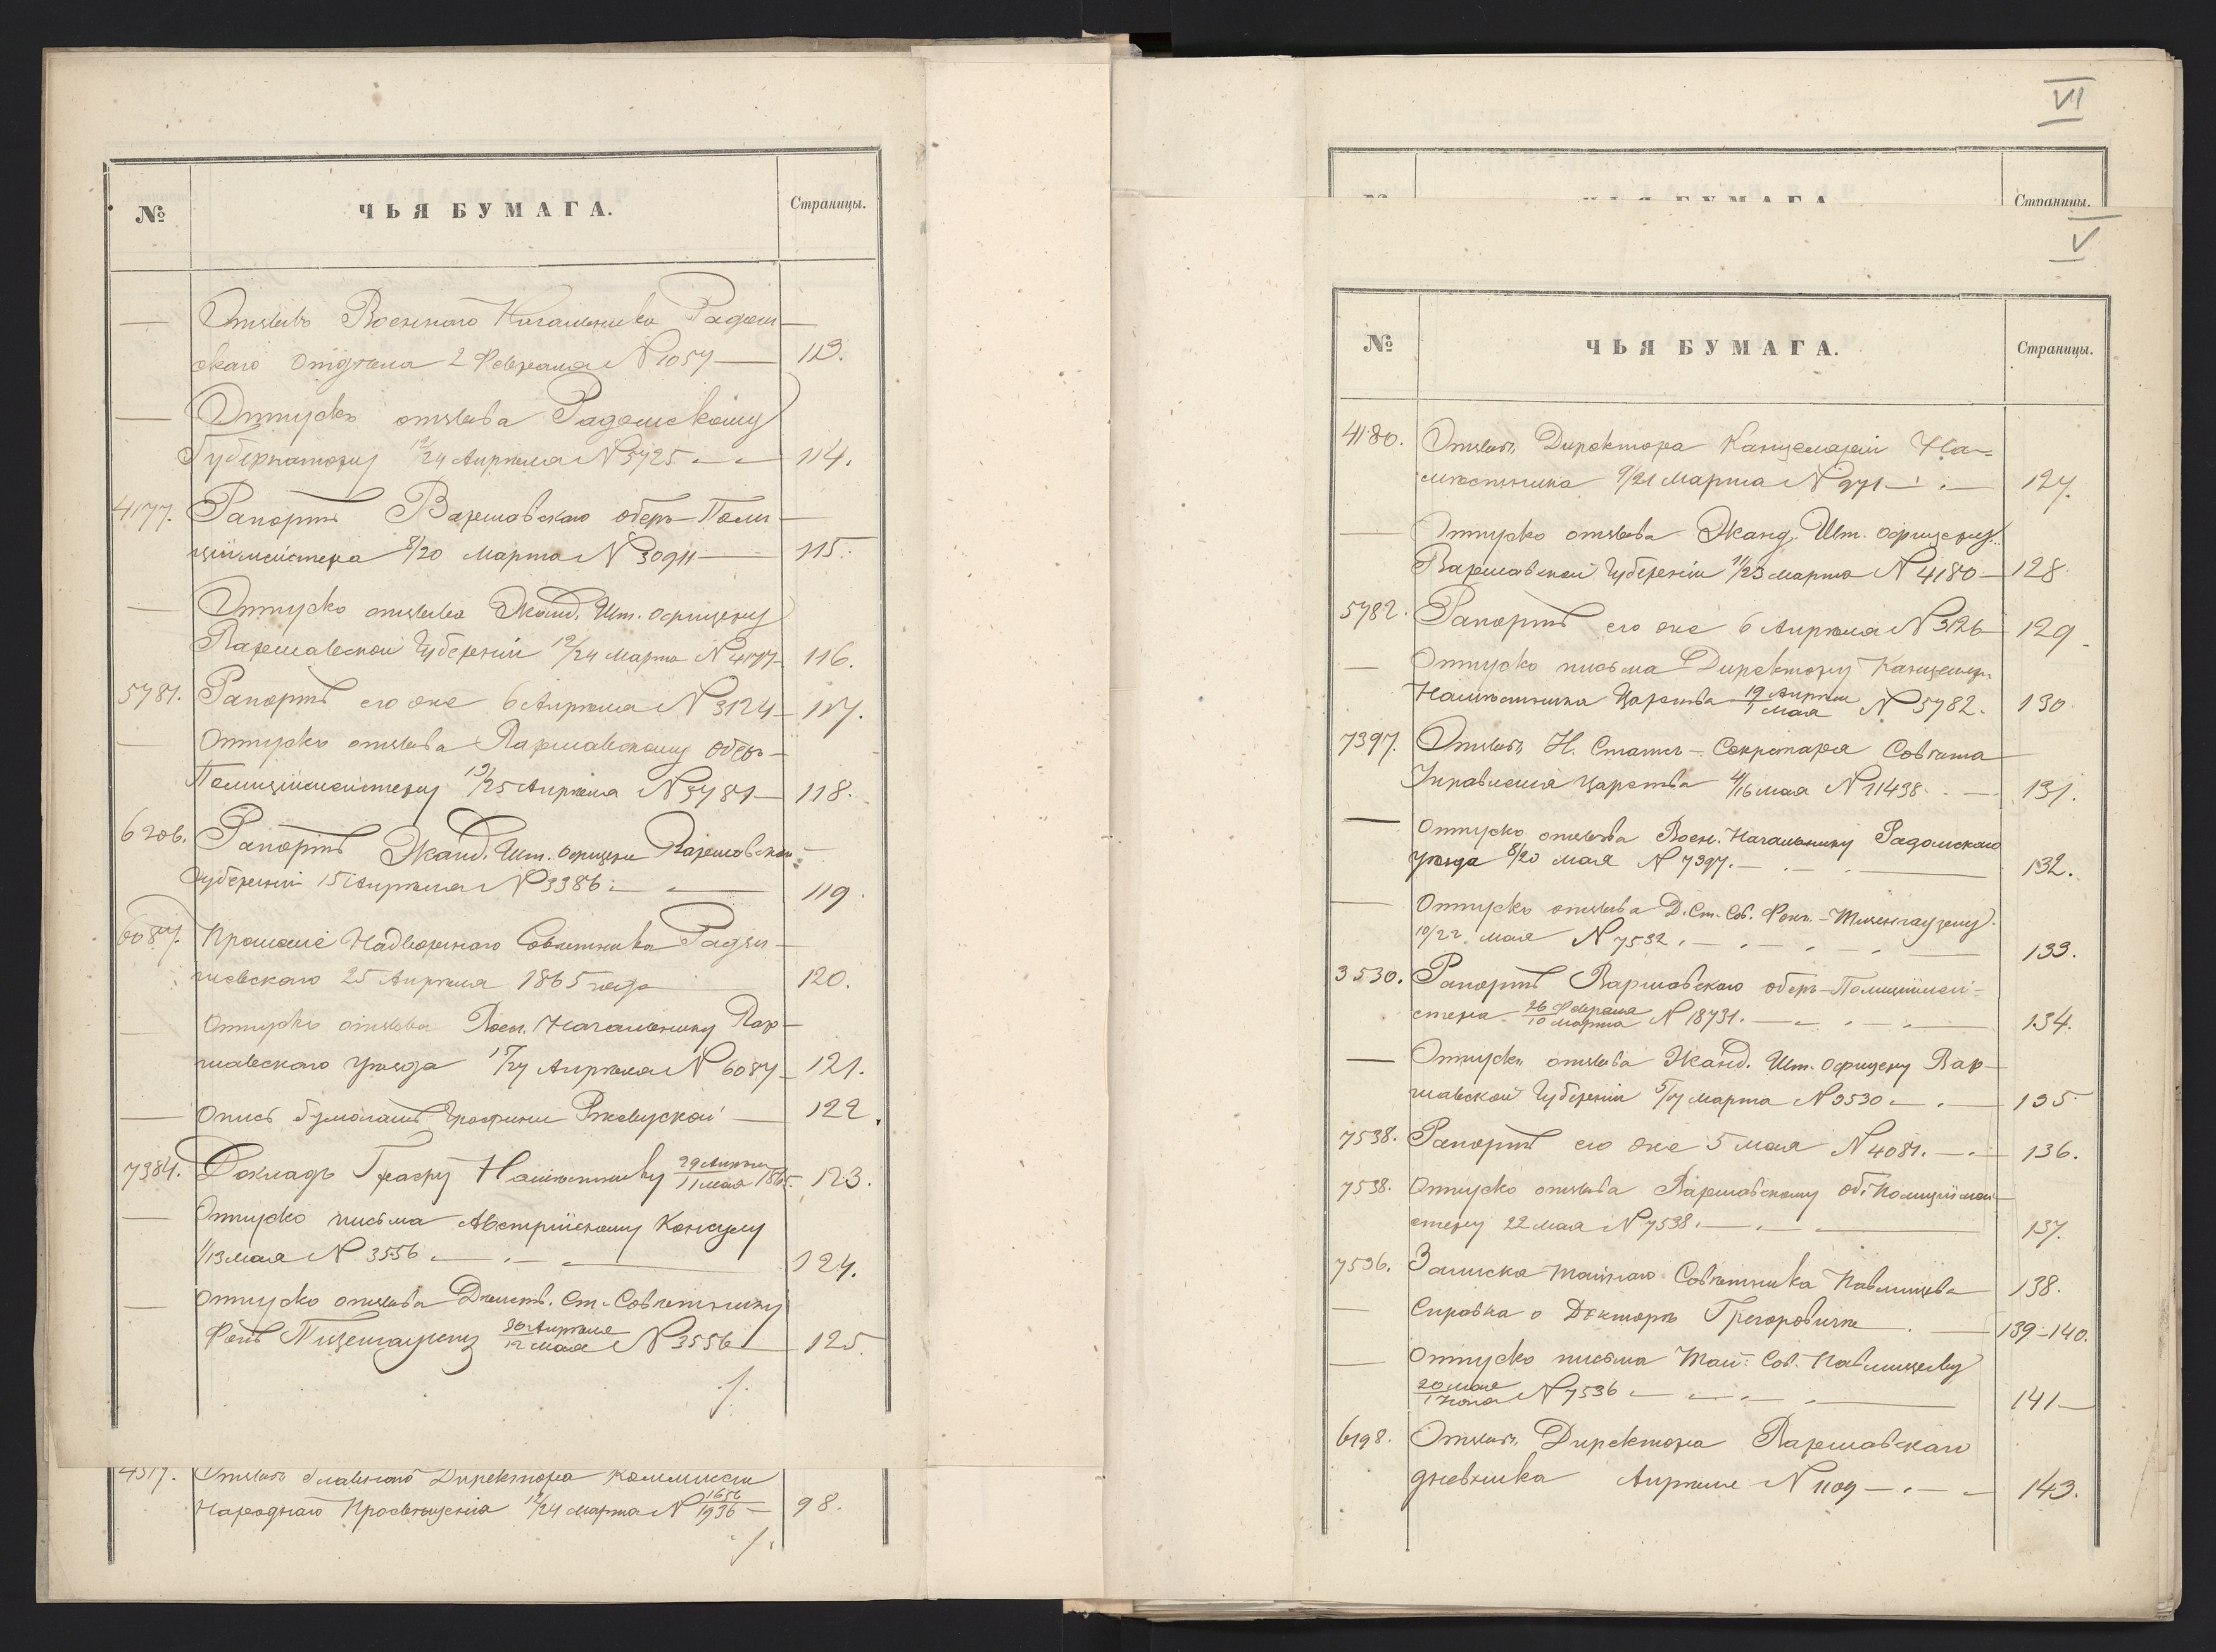 № ЧЬЯ БУМАГА. Страницы.
— Отзывъ Военнаго Начальника Радом-
скаго отдѣла 2 Февраля № 1057 — 113.
— Отпускъ отзыва Радомскому
Губернатору 12/24 Апрѣля № 5725 — 114.
4177. Рапортъ Варшавскаго оберъ-Поли-
ціймейстера 8/20 Марта № 30911 — 115.
— Отпускъ отзыва Жанд. Шт. Офицеру
Варшавской Губерніи 12/24 Марта № 4177 — 116.
5781. Рапортъ его же 6 Апрѣля № 3124 — 117.
— Отпускъ отзыва Варшавскому Оберъ-
Полиціймейстеру 13/25 Апрѣля № 5781 — 118.
6206. Рапортъ Жанд. Шт. Офицера Варшавской
Губерніи 15 Апрѣля № 3386. — 119.
6087. Прошеніе Надворнаго Совѣтника Радзи-
шевскаго 25 Апрѣля 1865 года 120.
— Отпускъ отзыва Воен. Начальнику Вар-
шавскаго уѣзда 15/27 Апрѣля № 6087 — 121.
— Опись бумагамъ Графини Ржевуской — 122.
7384. Докладъ Графу Намѣстнику 29 Апрѣля/11 мая 1865. 123.
— Отпускъ письма Австрійскому Консулу
1/13 мая № 3556 — 124.
— Отпускъ отзыва Дѣйств. Ст. Совѣтнику
Фонъ 30 Апрѣля/12 мая № 3556 — 125.
./.
4517. Отзывъ Главнаго Директора Коммисіи
Народнаго Просвѣщенія 12/24 марта № 1656/1936 — 98.
./.
VI
Страницы.
V
№ ЧЬЯ БУМАГА. Страницы.
4180. Отзывъ Директора Канцеляріи На-
мѣстника 9/21 Марта № 971 — 127.
— Отпускъ отзыва Жанд. Шт. Офицеру
Варшавской Губерніи 11/23 марта № 4180 — 128
5782. Рапортъ его же 6 Апрѣля № 3126 — 129.
— Отпускъ письма Директору Канцеляріи
Намѣстника Царства 19 Апрѣля/1 мая № 5782. 130
7397. Отзывъ Н. Статсъ-Секретаря Совѣта
Управленія Царства 4/16 мая № 11438. — 131.
— Отпускъ отзыва Воен. Начальнику Радомскаго
уѣзда 8/20 мая № 7397. — 132.
— Отпускъ отзыва Д. Ст. Сов. Фонъ-
10/22 мая № 7532. — 133.
3530. Рапортъ Варшавскаго оберъ-Полиціймей-
стера 26 Февраля/10 марта № 18731. — 134.
— Отпускъ отзыва Жанд. Шт. Офицеру Вар-
шавской Губерніи 5/17 марта № 3530 — 135
7538. Рапортъ его же 5 мая № 4081. — 136.
7538. Отпускъ отзыва Варшавскому об. Полиціймей-
стеру 22 мая № 7538. — 137.
7536. Записка тайнаго Совѣтника Павлищева 138.
— Справка о Докторѣ Грегоровичѣ. — 139-140.
— Отпускъ письма Тай: Сов. Павлищеву
20 мая/1 Іюня № 7536 — 141 —
6198. Отзывъ Директора Варшавскаго
дневника Апрѣля № 1109 — 143.